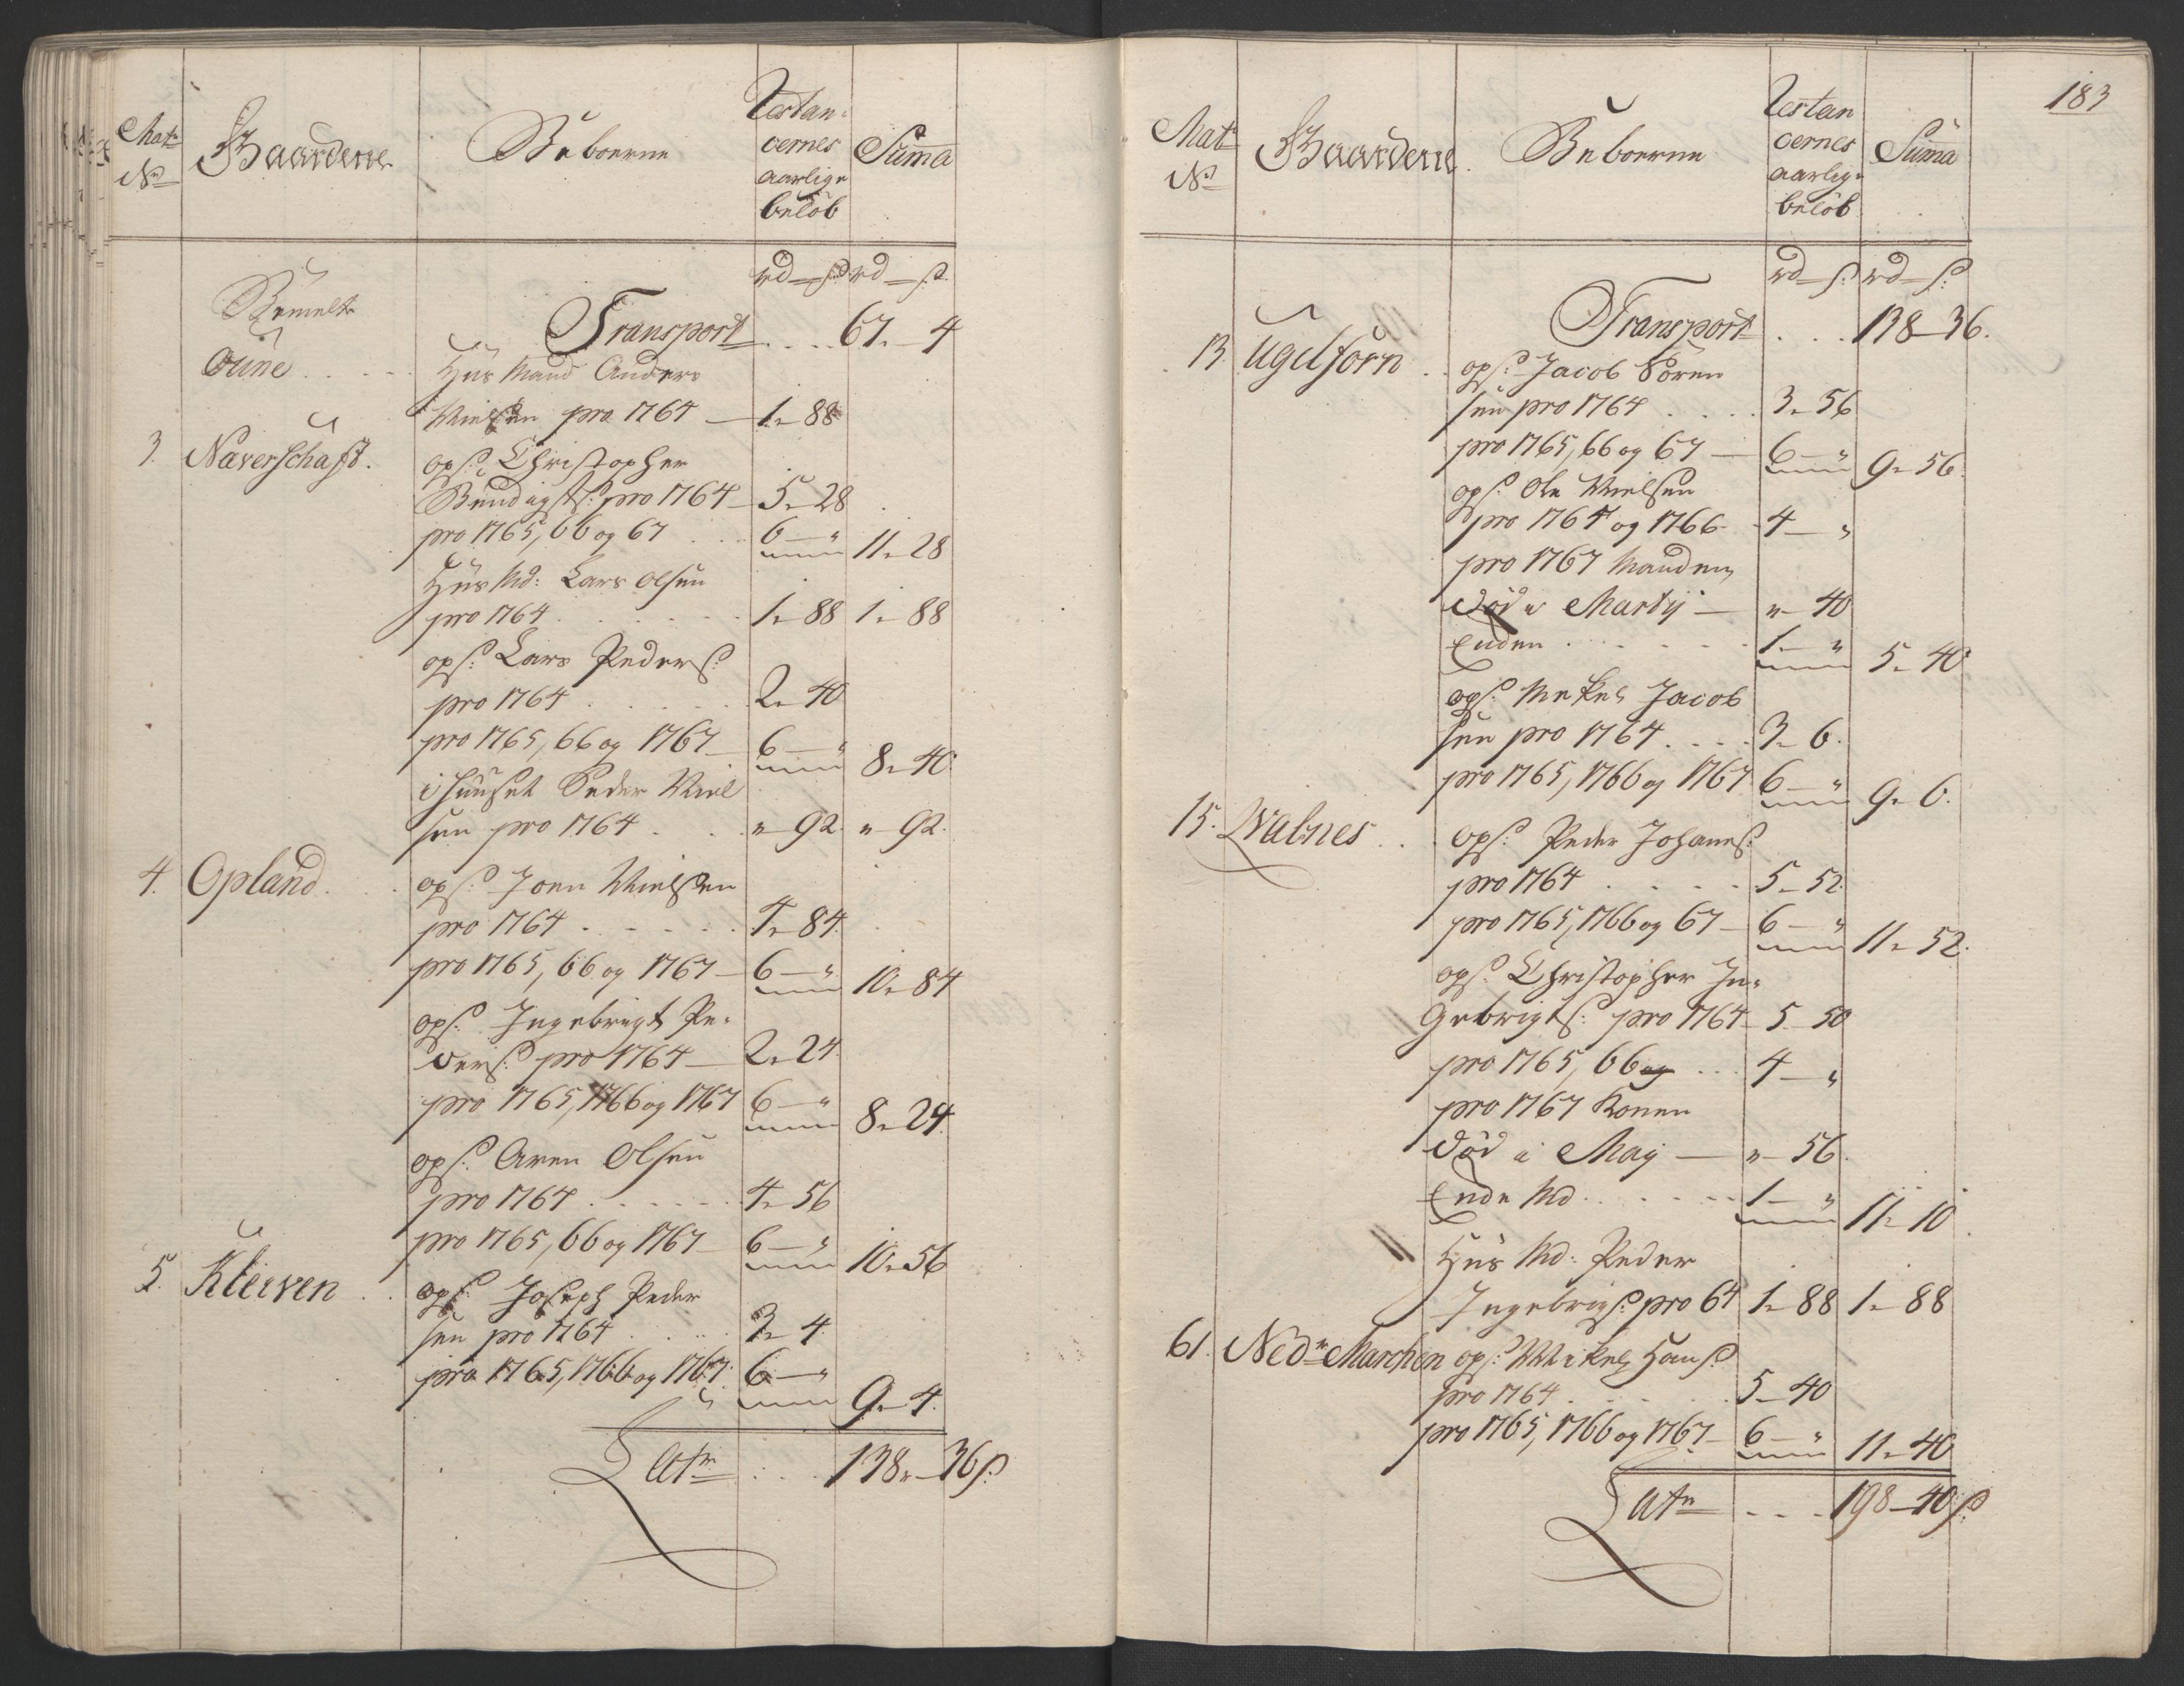 Matr
No
Gaardene
Beboerne
Restan-
cernes
aarlige
beløb
Suma
rd – s: rd – s.
Bemelte
Oune . . . .
Transport . . . . 67. – 4
Huus Mand Anders
Nielsen pro 1764 – 1. – 88
3. Naverschaft. ops: Christopher
Bendigts: pro 1764 – 5. – 28
pro 1765, 66 og 67 . . . 6 – " 11. – 28
Huus Md: Lars Olsen
pro 1764 . . . . . . 1. – 88 1. – 88
ops: Lars Peders:
pro 1764 . . . . . 2. – 40
pro 1765, 66 og 1767 – 6 – " 8. – 40.
i Huuset Peder Niel
sen pro 1764 . . . " – 92. " – 92.
4. Opland. . . . ops: Joen Nielsen
pro 1764 . . . . . . 4. – 84.
pro 1765, 66 og 1767 – 6 – " 10. – 84
ops: Ingebrigt Pe-
ders: pro 1764 – 2. – 24.
pro 1765, 1766 og 1767 6 – " 8. – 24.
ops: Aren Olsen
pro 1764 . . . . . . 4. – 56
pro 1765, 66 og 1767 – 6 – " 10. – 56
5. Kleiven . . ops: Joseph Peder
sen pro 1764 . . . . 3. – 4.
pro 1765, 1766 og 1767. 6 – " 9. – 4.
Latr . . . . 138. – 36 s:
183
Matr
No
Gaardene
Beboerne
Restan
cernes
aarlige
beløb
Suma
rd – s: rd – s:
Transport . . . 138 – 36.
13. Ugelsförn . . ops: Jacob Sören
sen pro 1764 . . . . 3. – 56
pro 1765, 66 og 67 – 6 – " 9. – 56.
ops: Ole Nielsen
pro 1764 og 1766 – 4 – "
pro 1767 Manden
död i Martij – " – 40
Enken . . . . . . 1. – " 5. – 40
ops: Mekel Jacob
sen pro 1764 . . . . 3. – 6.
pro 1765, 1766 og 1767 6 – " 9. – 6.
15. Walnes . . . ops: Peder Johans:
pro 1764 . . . . 5. – 52.
pro 1765, 1766 og 67 – 6 – " 11. – 52.
ops: Christopher In-
gebrigts: pro 1764 – 5. – 50
pro 1765, 66 og . . . 4 – "
pro 1767 Konen
död i Maij – " – 56.
Enke Md . . . . . . 1 – " 11. – 10
Huus Md: Peder
Ingebrigs: pro 64 1. – 88 1. – 88
61. Nedre Marchen ops: Mikel Hans:
pro 1764 . . . . . . 5 – 40
pro 1765, 1766 og 1767 – 6 – " 11. – 40
Latr . . . . 198 – 40 s: